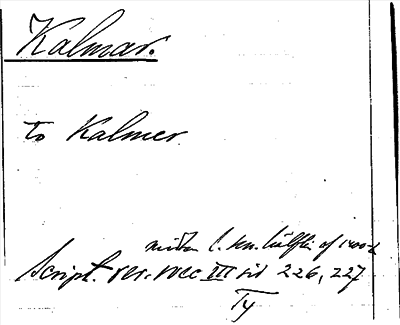 Kalmar.
to Kalmer
senare hälften af 1400-t
Script. rer. svec III sid 226, 227
Ty